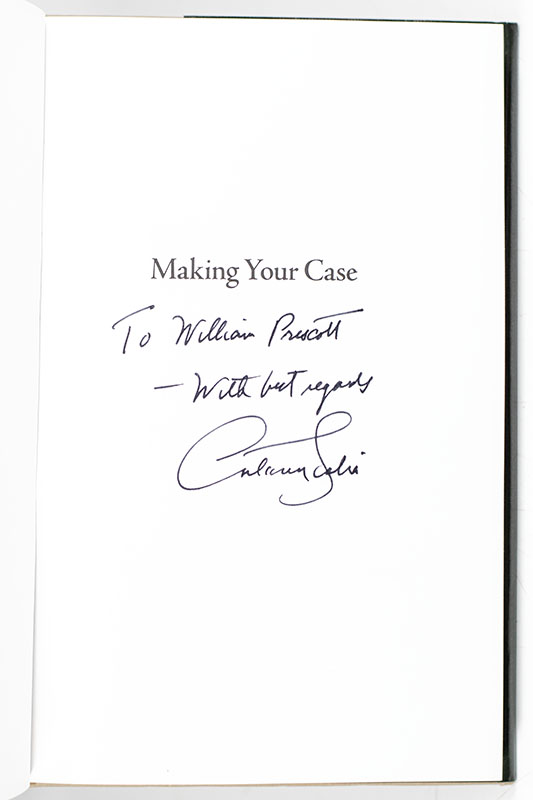 Making Your Case
To William Prescott
— With best regards
Antonin Scalia